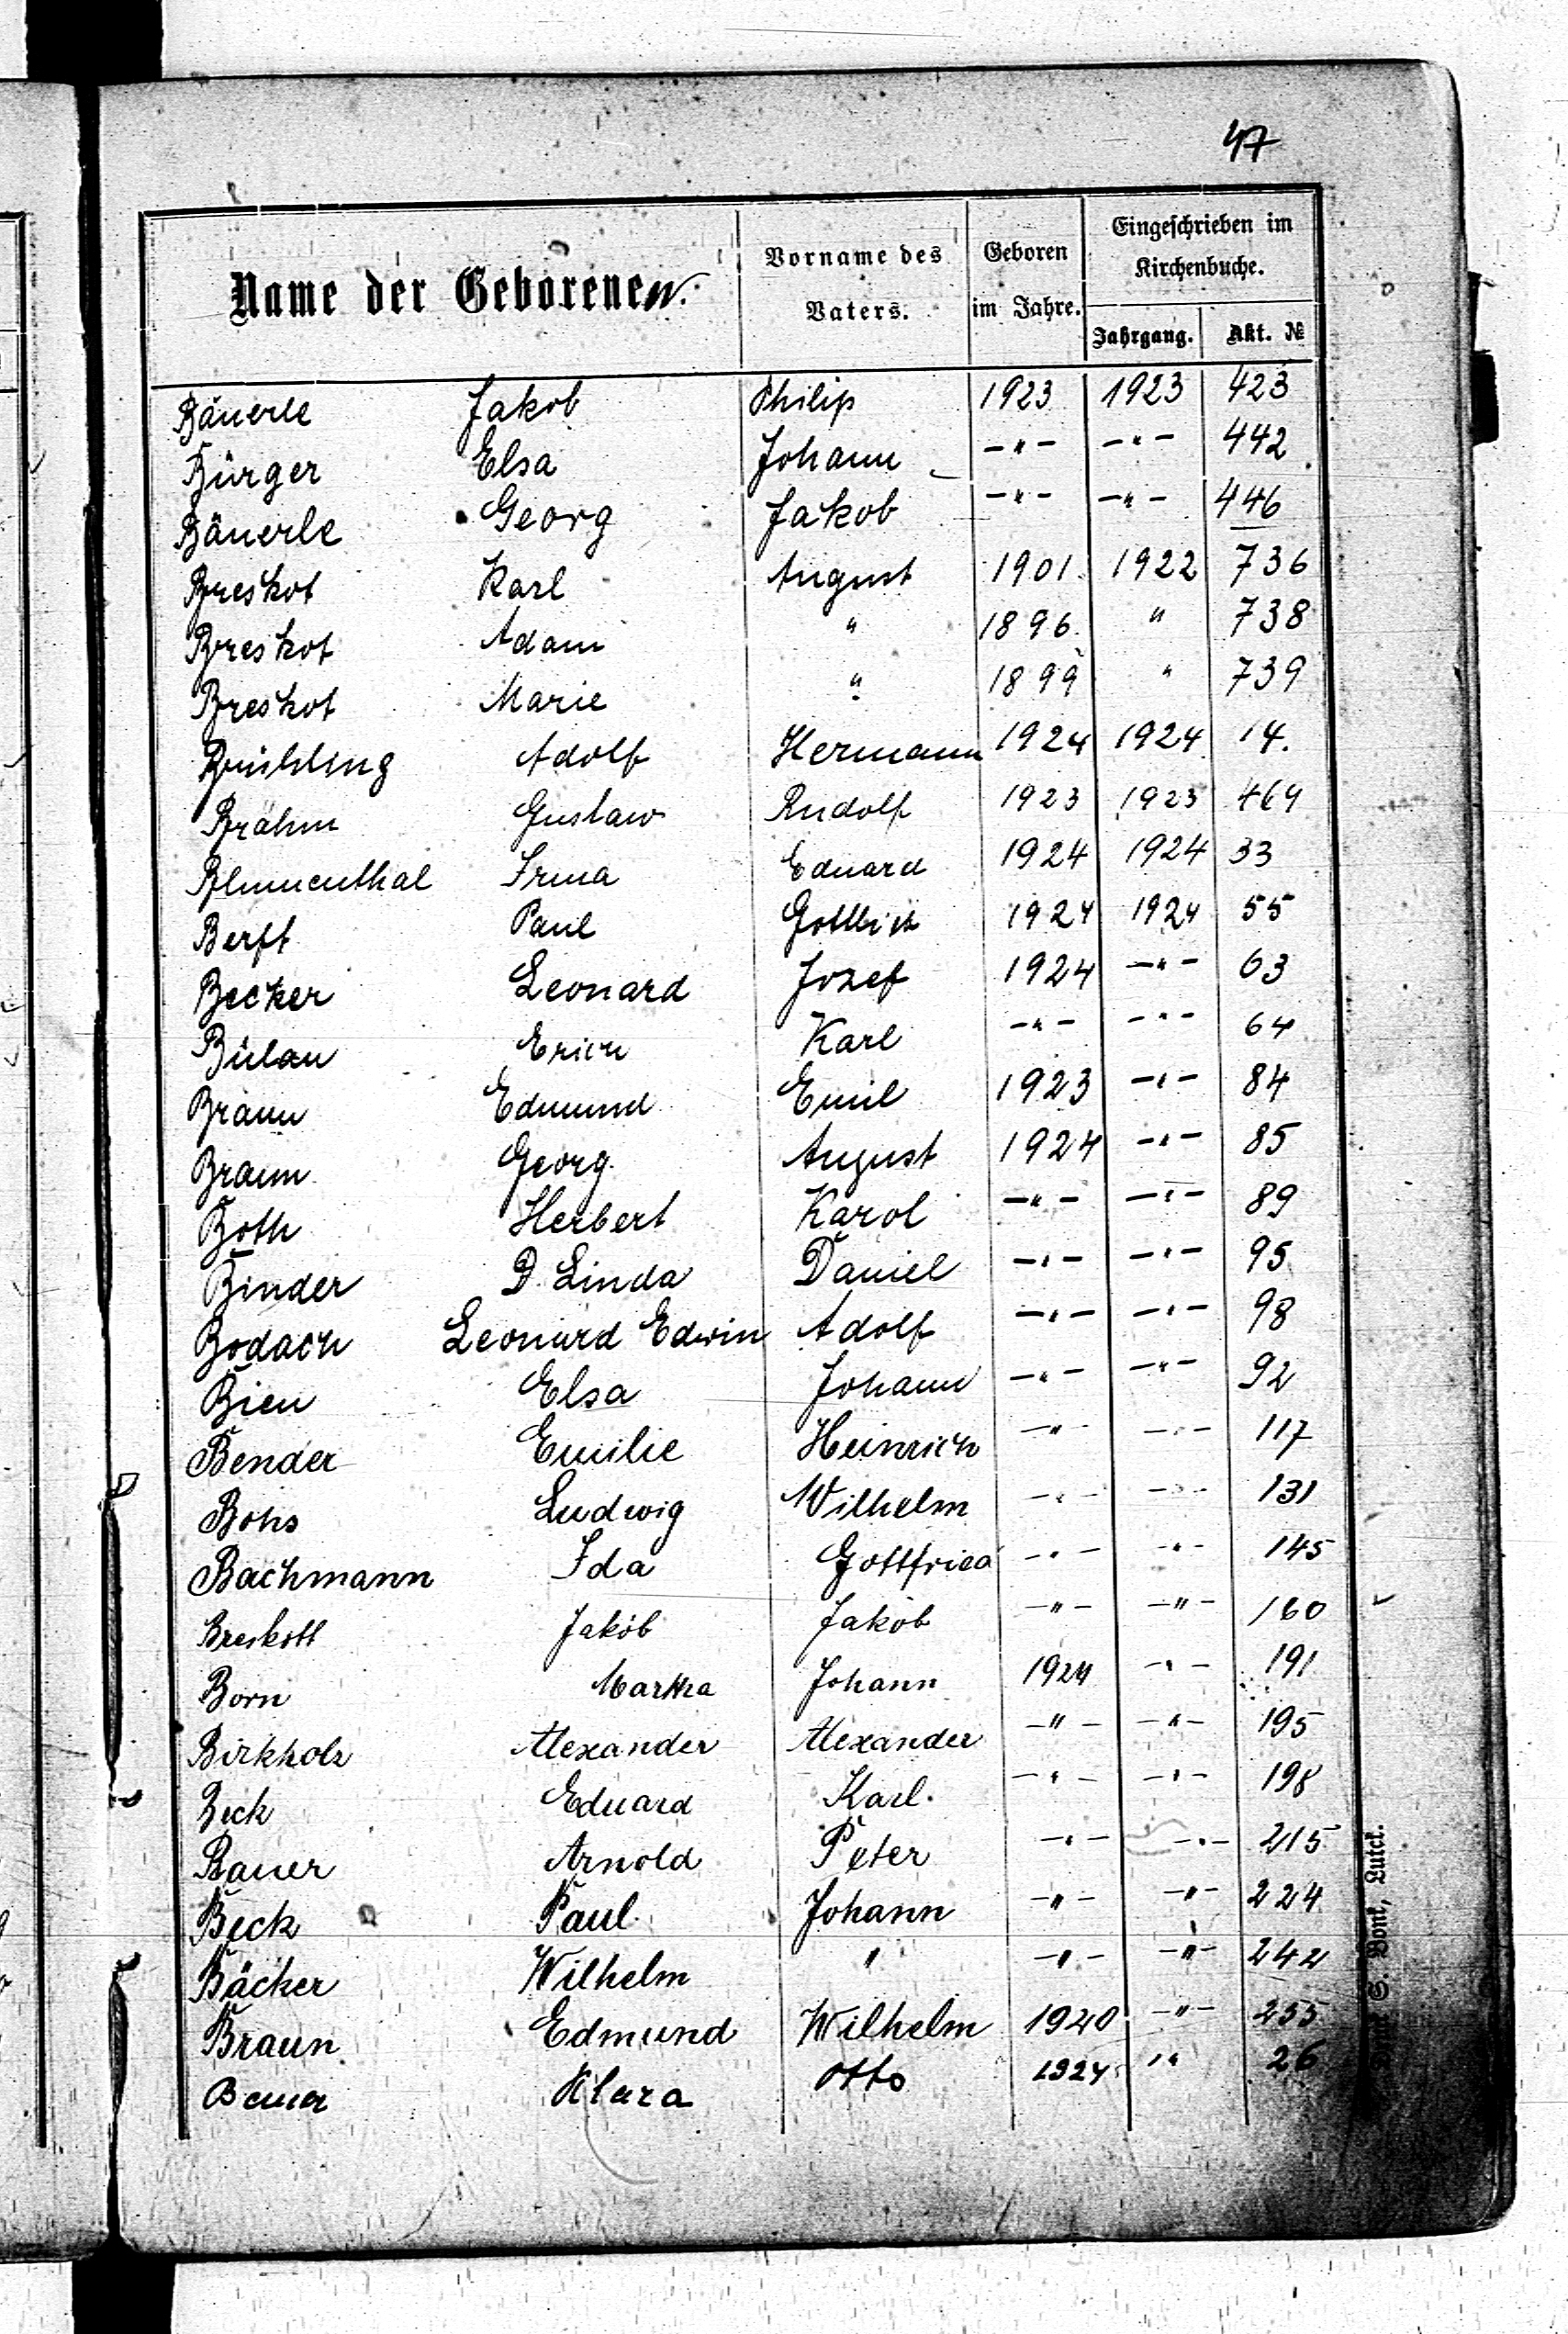 47
Name der Geborenen. Vorname des Vaters. Geboren im Jahre. Eingeschrieben im Kirchenbuche.
Jahrgang. Akt. №
Bäuerle Jakob Philip 1923 1923 423
Bürger Elsa Johann -"- -"- 442
Bäuerle Georg Jakob -"- -"- 446
Breskot Karl August 1901 1922 736
Breskot Adam " 1896 " 738
Breskot Marie " 1899 " 739
Brühling Adolf Hermann 1924 1924 14.
Brähm Gustaw Rudolf 1923 1923 469
Blumenthal Irma Eduard 1924 1924 33
Berft Paul Gottlieb 1924 1924 55
Becker Leonard Jozef 1924 -"- 63
Bülau Erich Karl -"- -"- 64
Braun Edmund Emil 1923 -"- 84
Braun Georg August 1924 -"- 85
Both Herbert Karol -"- -"- 89
Binder D. Linda Daniel -"- -"- 95
Bodach Leonard Edwin Adolf -"- -"- 98
Bien Elsa Johann -"- -"- 92
Bender Emilie Heinrich -"- -"- 117
Bohs Ludwig Wilhelm -"- -"- 131
Bachmann Ida Gottfried -"- -"- 145
Breskott Jakob Jakob -"- -"- 160
Born Martha Johann 1924 -"- 191
Birkholz Alexander Alexander -"- -"- 195
Beck Eduard Karl. -"- -"- 198
Bauer Arnold Peter -"- -"- 215
Beck Paul Johann -"- -"- 224
Bäcker Wilhelm " -"- -"- 242
Braun Edmund Wilhelm 1920 -"- 255
Bauer Klara Otto 1924 " 26
Bont, Lutck.